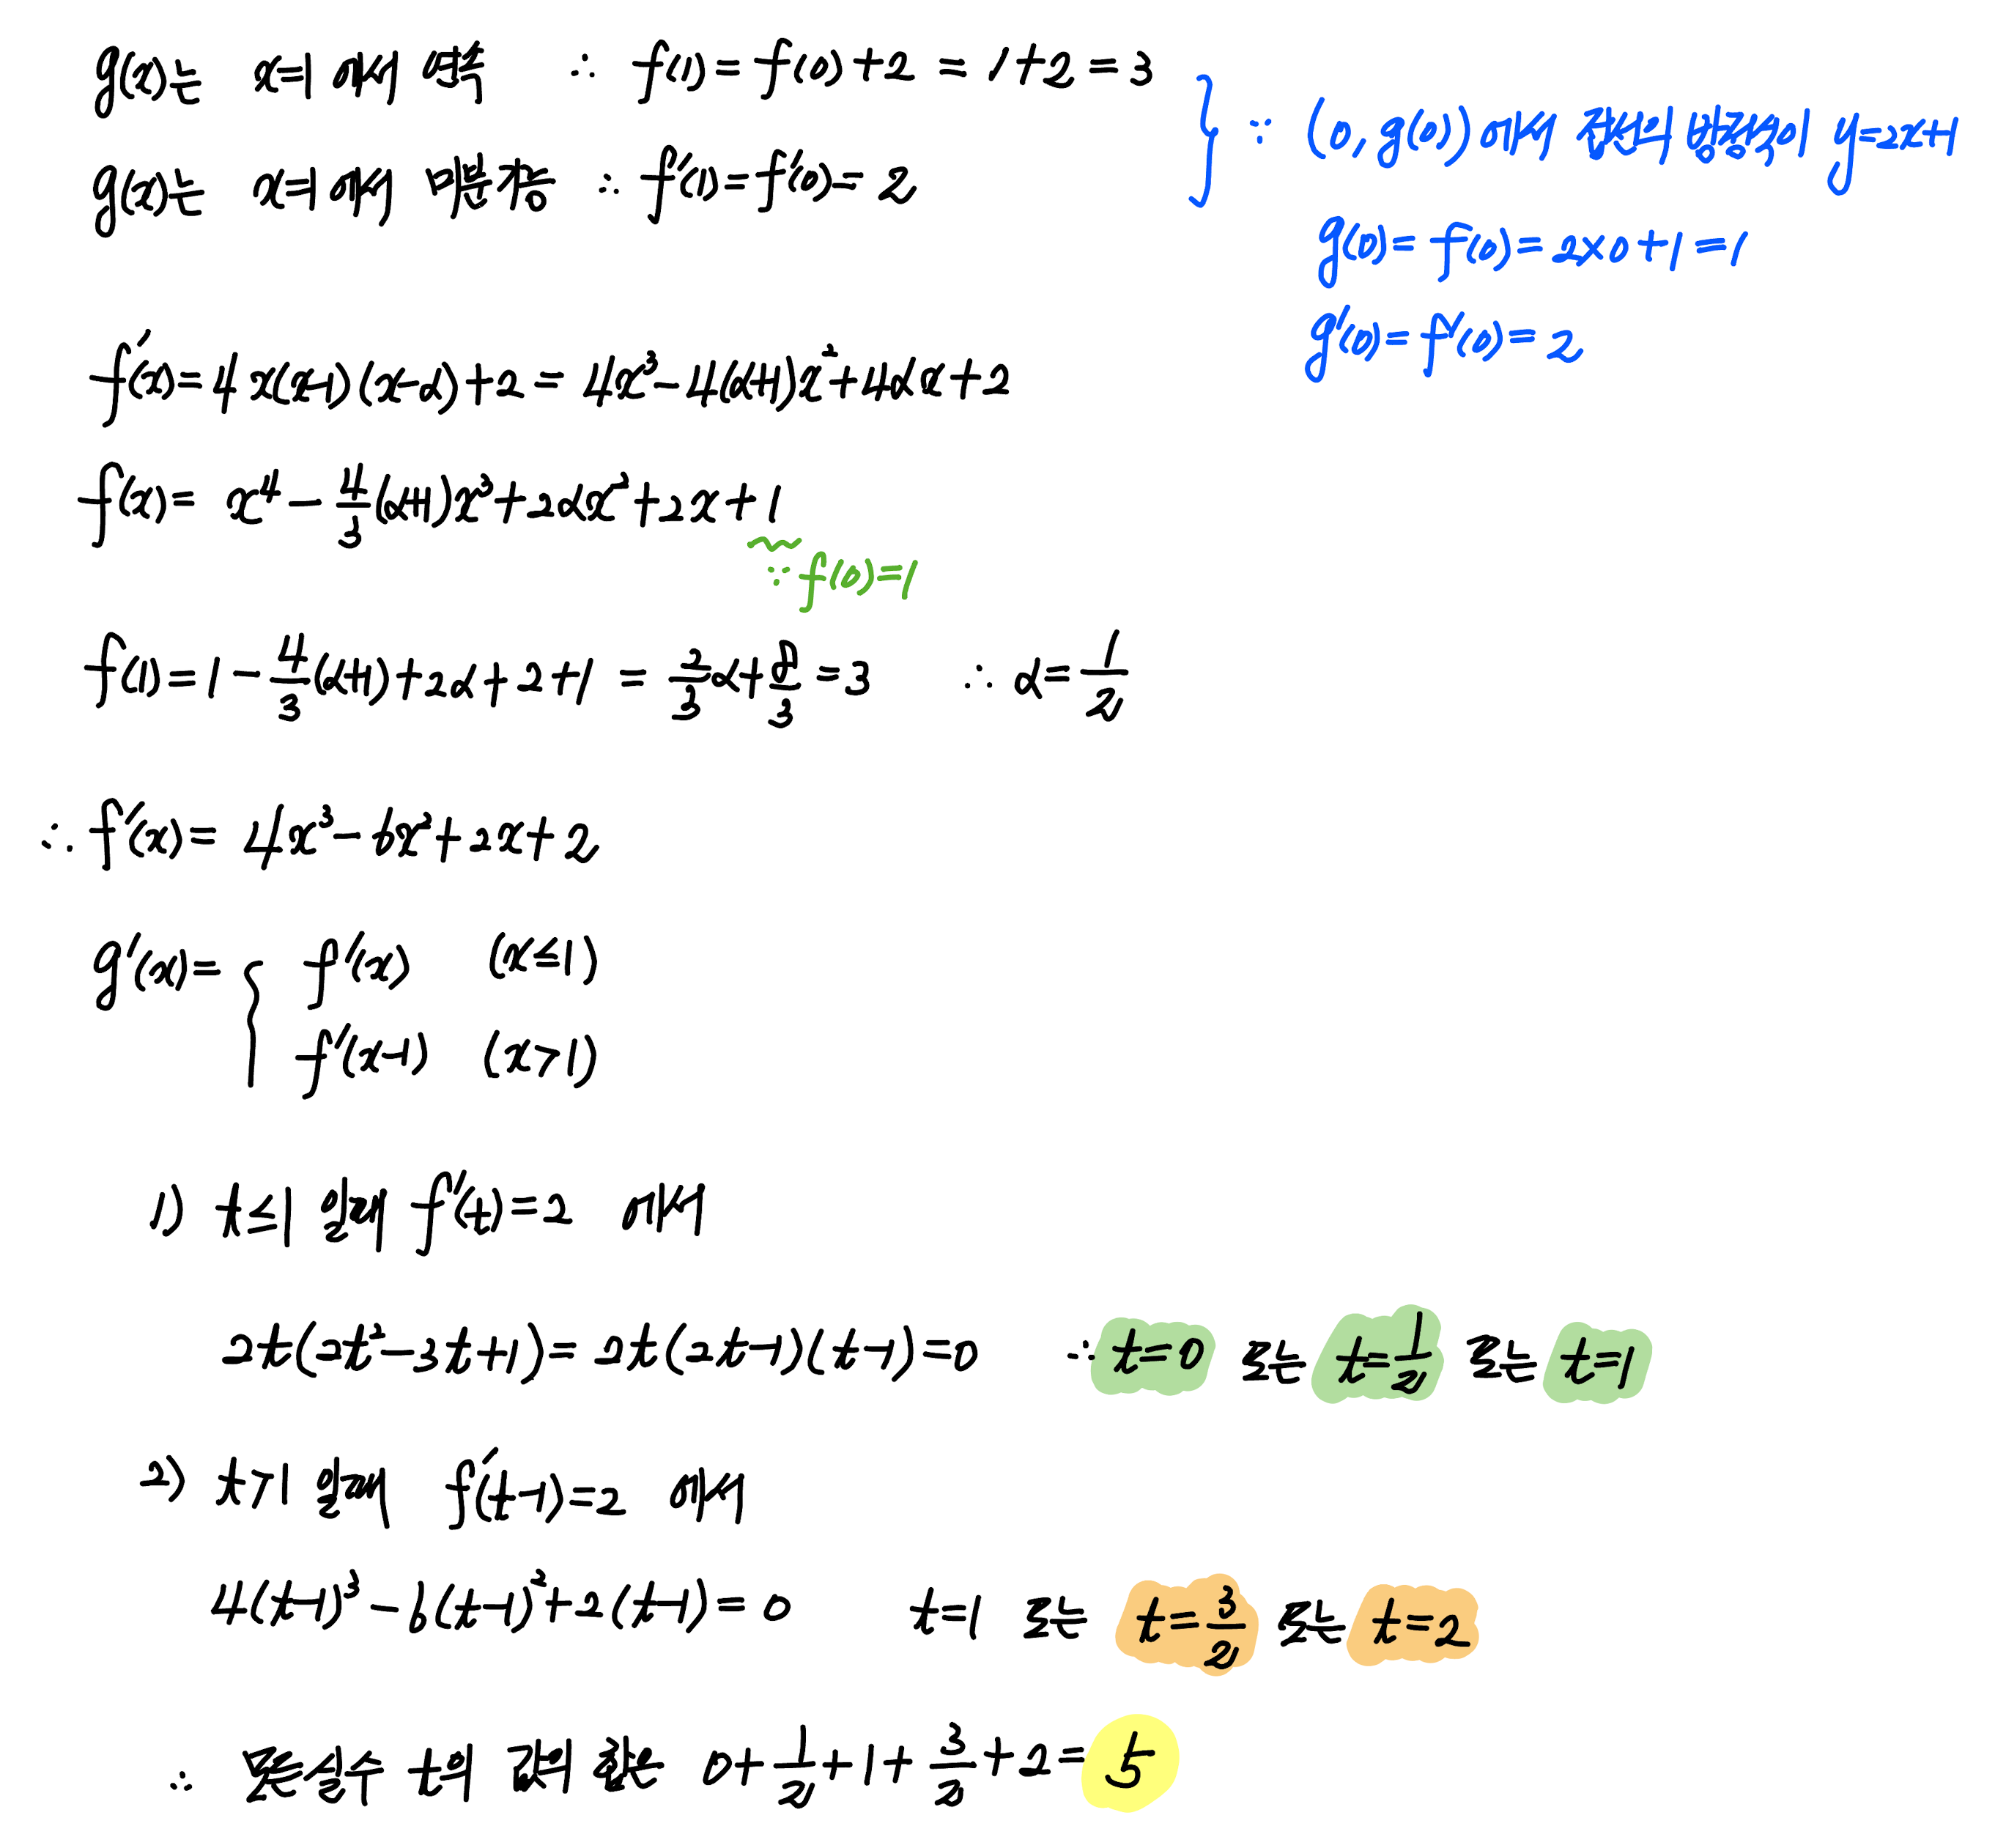 g(x)는 x=1 에서 연속 ∴ f(1)=f(0)+2=1+2=3
g(x)는 x=1 에서 미분가능 ∴ f'(1)=f'(0)=2
∵ (0, g(0)) 에서 접선의 방정식이 y=2x+1
g(0)=f(0)=2×0+1=1
g'(0)=f'(0)=2
f'(x)=4x(x-1)(x-α)+2=4x³-4(α+1)x²+4αx+2
f(x)= x⁴-4/3(α+1)x³+2αx²+2x+1
∵ f(0)=1
f(1)=1-4/3(α+1)+2α+2+1 = 2/3α+8/3=3 ∴ α=1/2
∴ f'(x)= 4x³-6x²+2x+2
g'(x)= { f'(x) (x≤1)
f'(x-1) (x>1)
1) t≤1 일때 f'(t)=2 에서
2t(2t²-3t+1)=2t(2t-1)(t-1)=0 ∴ t=0 또는 t=1/2 또는 t=1
2) t>1 일때 f'(t-1)=2 에서
4(t-1)³-6(t-1)²+2(t-1)=0 t=1 또는 t=3/2 또는 t=2
∴ 모든 실수 t의 값의 합은 0+1/2+1+3/2+2=5